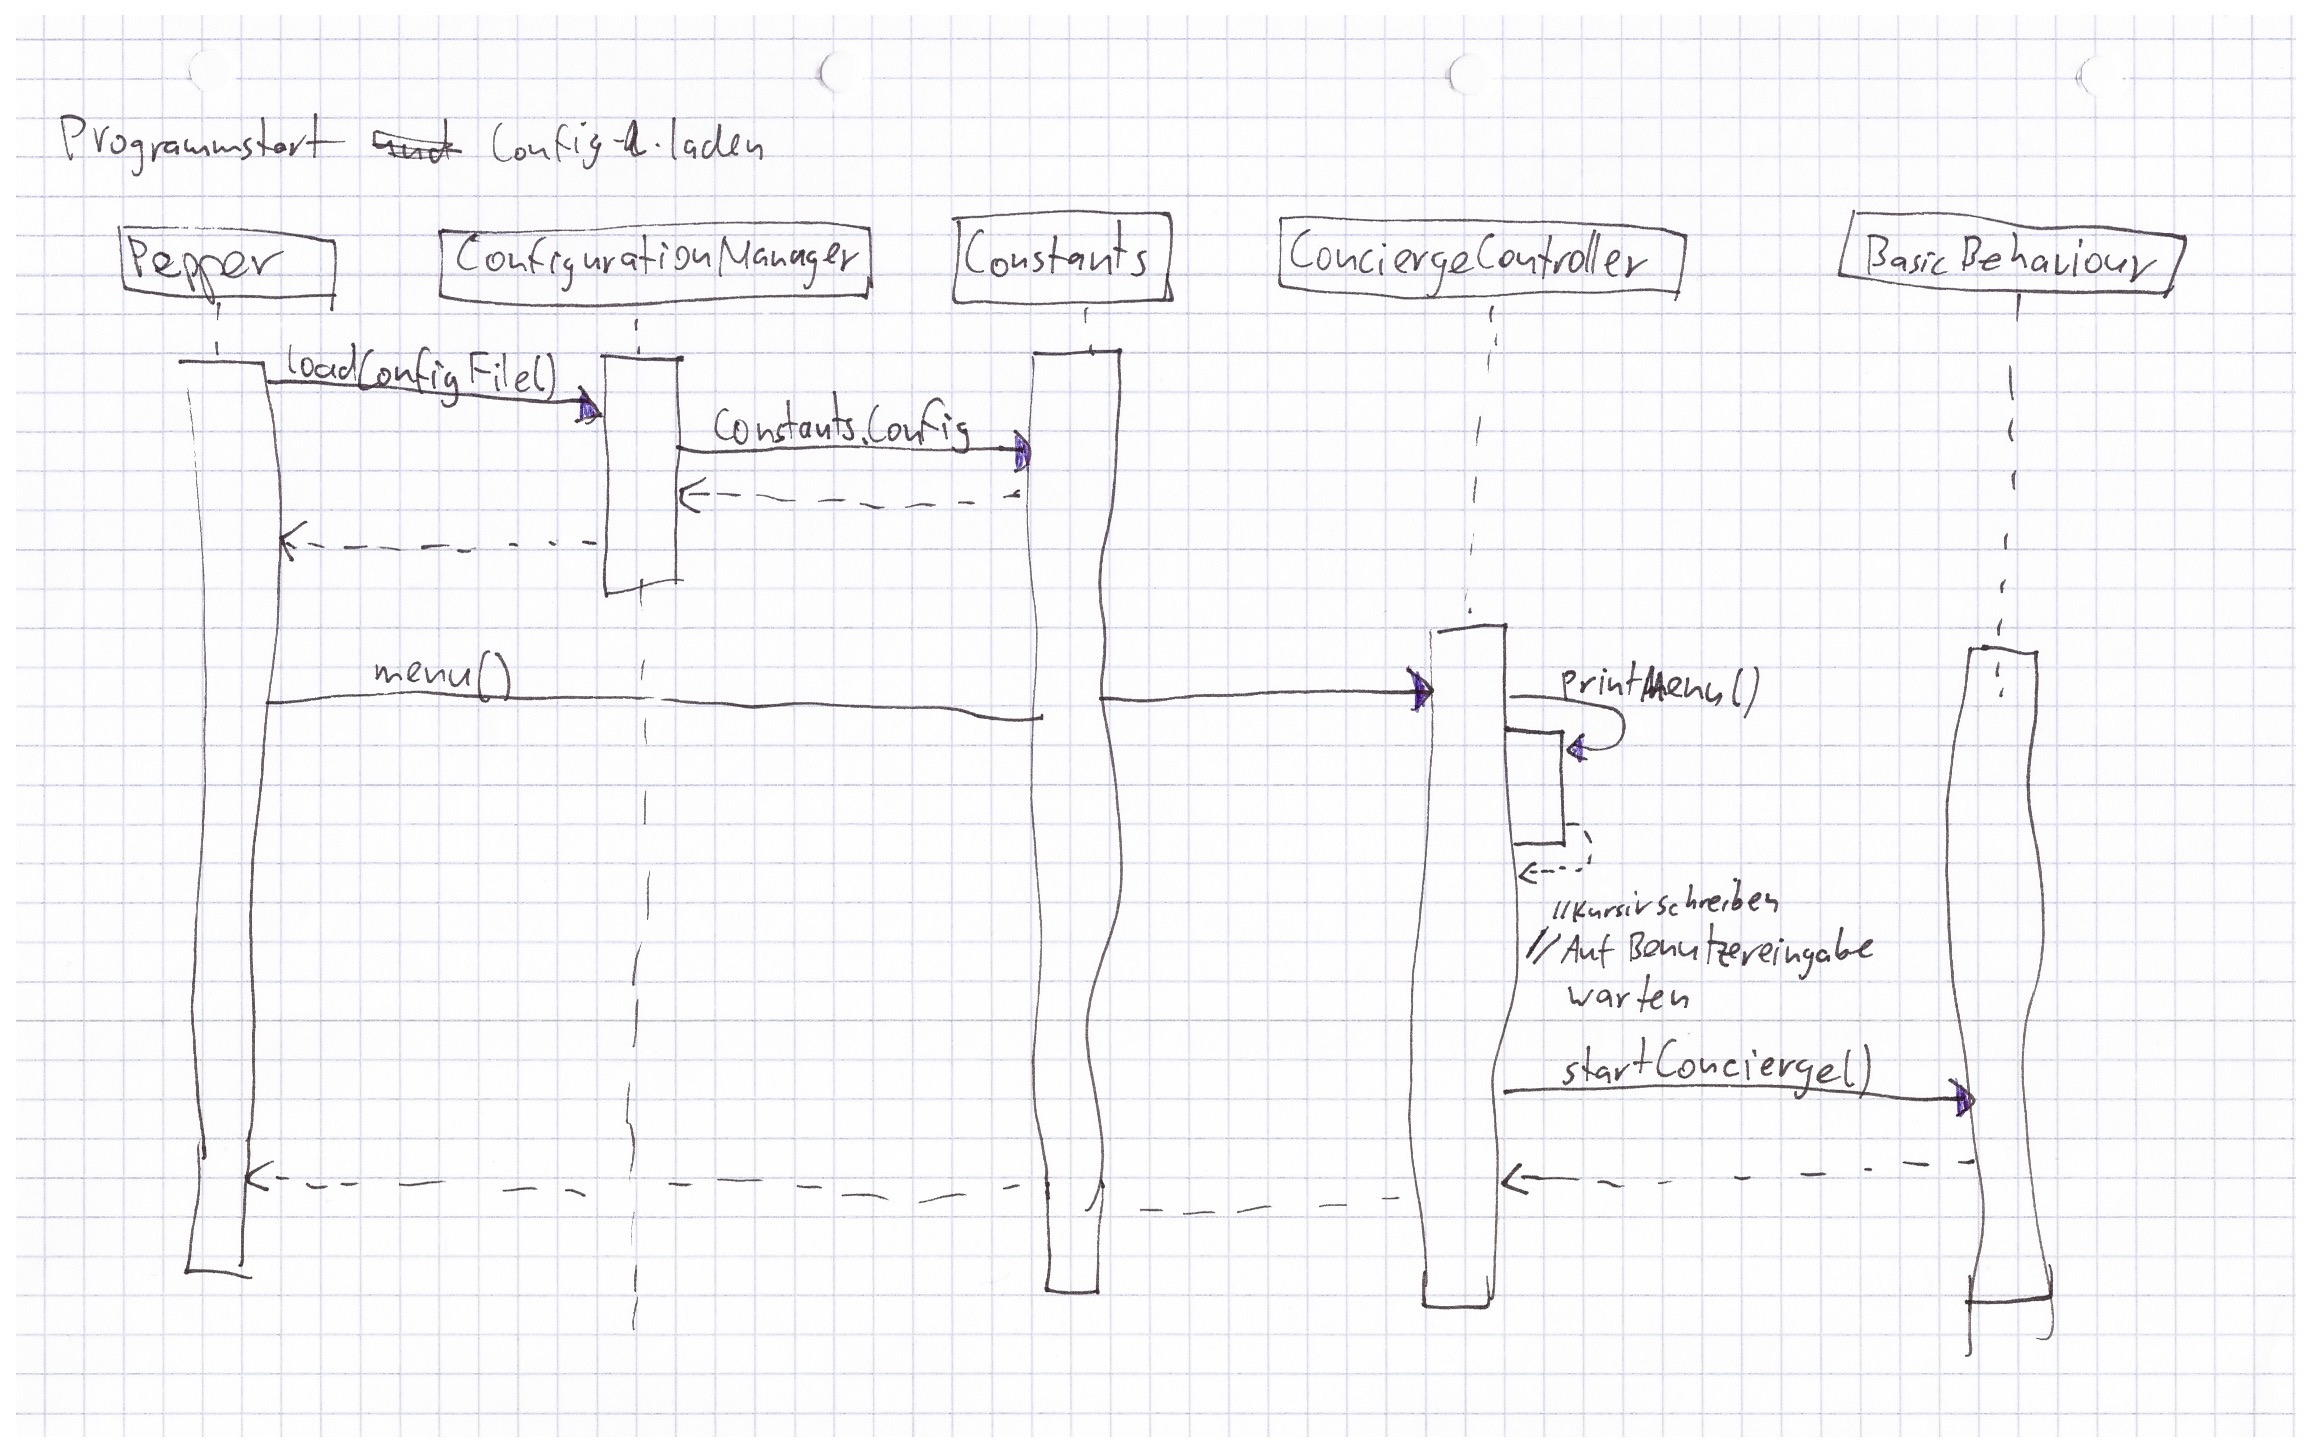 Programmstart und Config laden
Pepper
ConfigurationManager
Constants
ConciergeController
BasicBehaviour
loadConfigFile()
Constants.Config
menu()
printMenu()
//Kursiv schreiben
//Auf Benutzereingabe
warten
startConcierge()